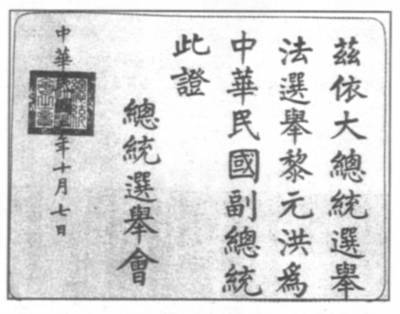 茲依大總統選舉
法選舉黎元洪爲
中華民國副總統
此證
總統選舉會
中華年十月七日